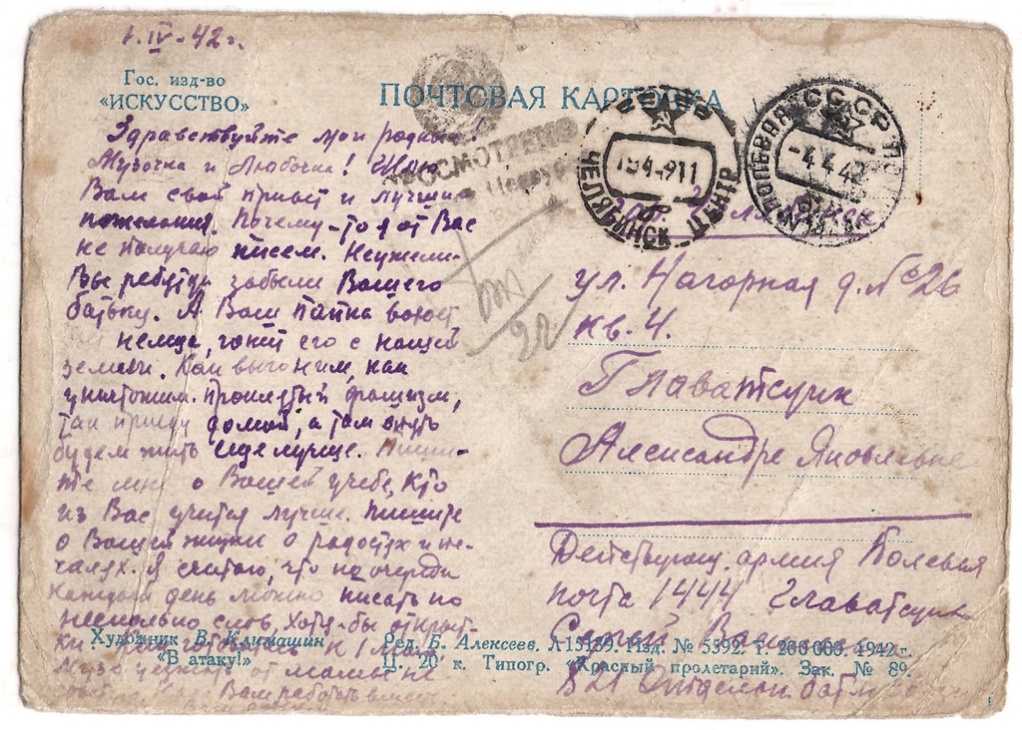 1.IV-42г.
Гос. изд-во
«ИСКУССТВО»
ПОЧТОВАЯ КАРТОЧКА
Здравствуйте мои родные!
Музочка и Любочка! Шлю
Вам свой привет и лучшие
пожелания. Почему-то я от Вас
не получаю писем. Неужели
Вы ребятки забыли Вашего
батьку. А Ваш папка воюет
немца, гонит его с нашей
земли. Как выгоним, как
уничтожим проклятый фашизм,
так приеду домой, а там опять
будем жить еще лучше. Пиши-
те мне о Вашей учебе, кто
из Вас учится лучше. Пишите
о Вашей жизни о радостях и пе-
чалях. Я считаю, что по очереди
каждый день можно писать по
несколько слов, хотя-бы открыт-
ки
к 1
от мамы не
Вам работать вместе
ПРОСМОТРЕНО
ЧЕЛЯБИНСК ЦЕНТР
СССР
ПОЛЕВАЯ
-4.4.42
ул. Нагорная д. №26
кв. 4.
Главатсчик
Александре Яковлевне
Действующ. армия Полевая
почта 1444 Главатсчик
821 Отдельн. бат.
Художник В. Климашин
«В атаку!»
Ред. Б. Алексеев. Л15159. Изд. № 5392. Т. 200 000. 1942 г.
Ц. 20 к. Типогр. «Красный пролетарий». Зак. № 89.